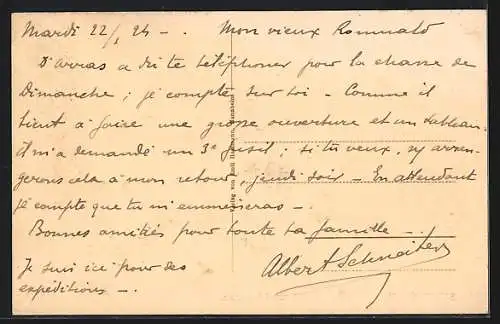 Mardi 22/1 24 -. Mon vieux Romuald
D'Arras a dû te téléphoner pour la chasse de
Dimanche; je compte sur toi - Comme il
tient à faire une grosse ouverture et un tableau
il m'a demandé un 3e fusil; si tu veux, ns arran-
gerons cela à mon retour, jeudi soir - En attendant
je compte que tu m'emmèneras -
Bonnes amitiés pour toute ta famille -
Je suis ici pour des
expéditions -.
Albert Schneider
Verlag von